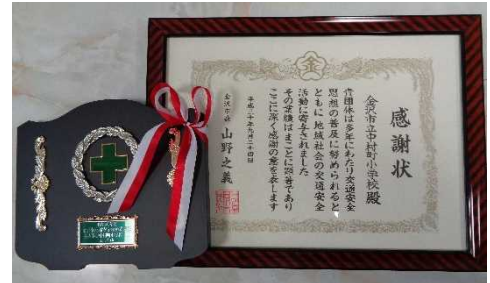 金
感謝状
金沢市立中村町小学校殿
貴団体は多年にわたり交通安全
思想の普及に努められると
ともに地域社会の交通安全
活動に寄与されました
その業績はまことに顕著であり
ここに深く感謝の意を表します
金沢市長 山野之義